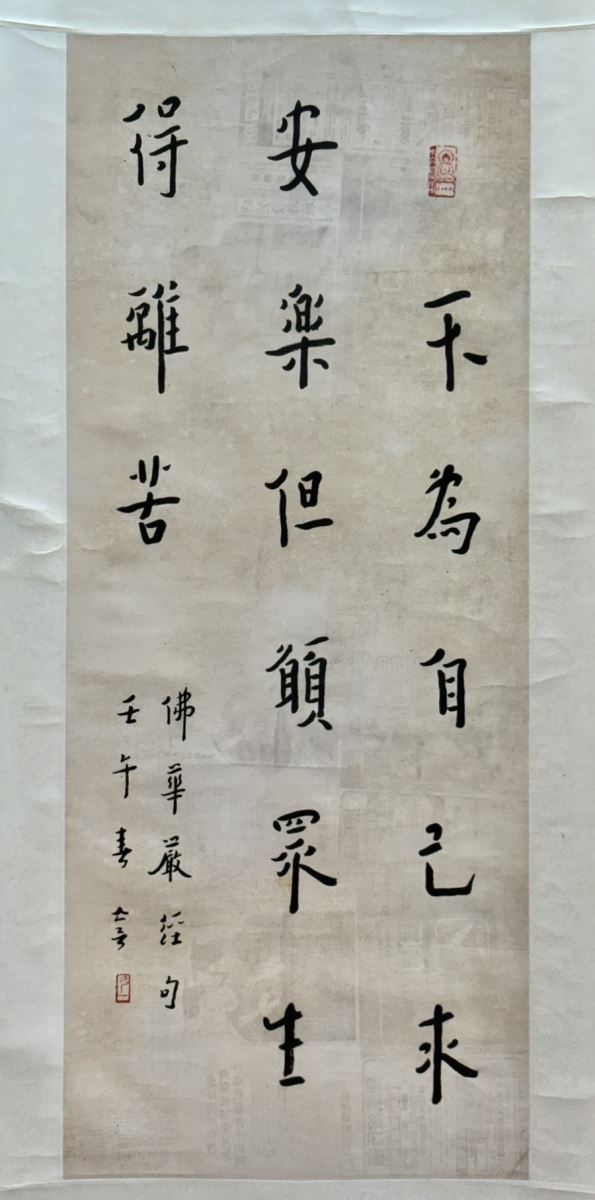 不為自己求
安樂但願眾生
得離苦
佛華嚴經句
壬午春 古音